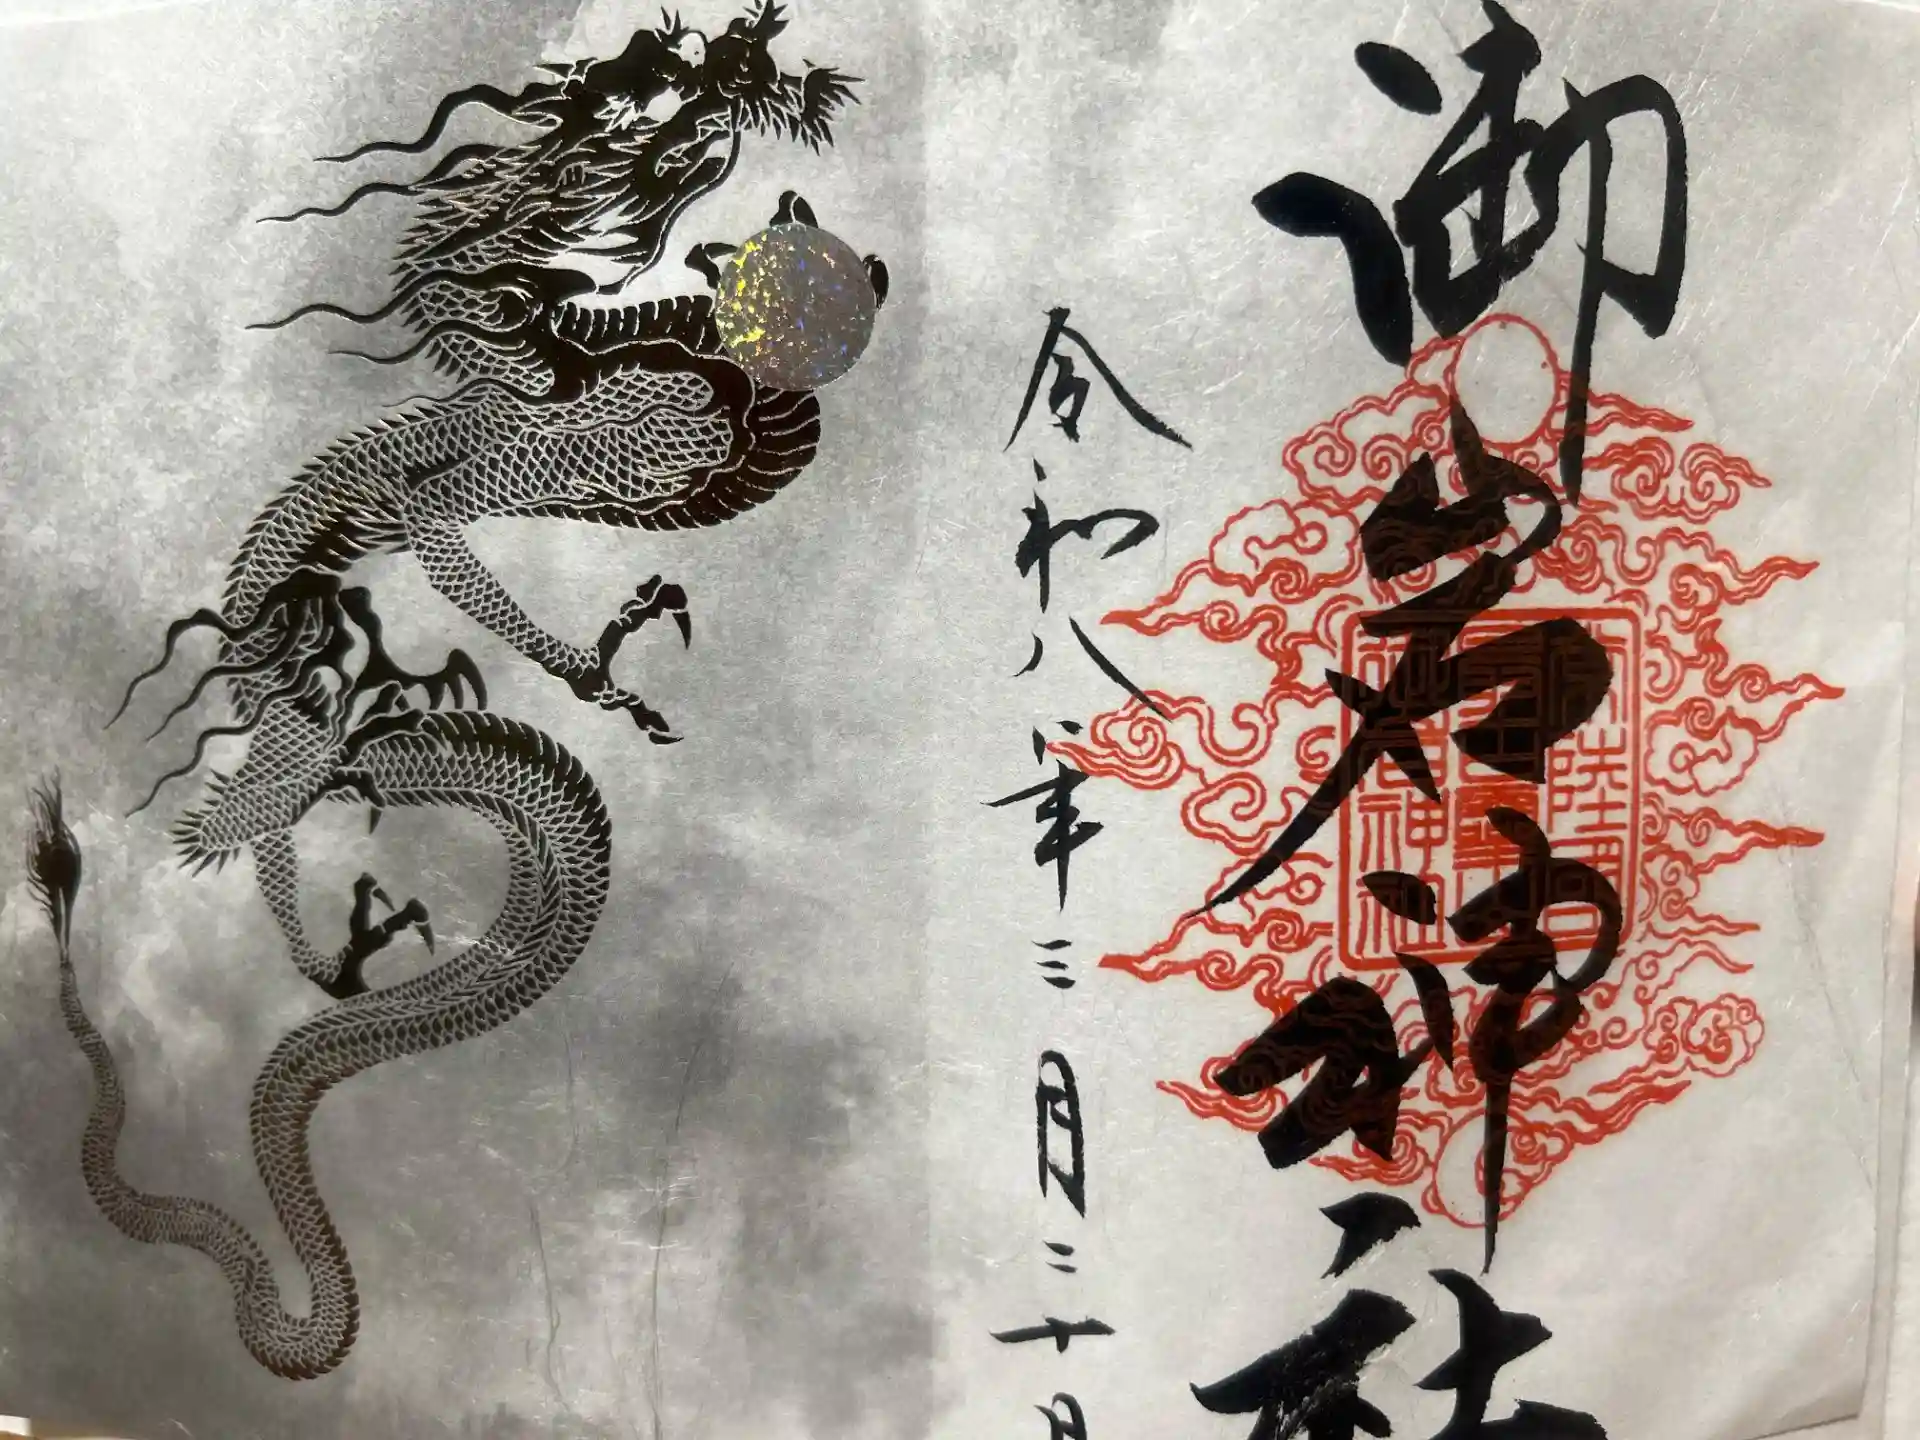 御岩神社
令和八年三月二十日
常陸國
御岩神社